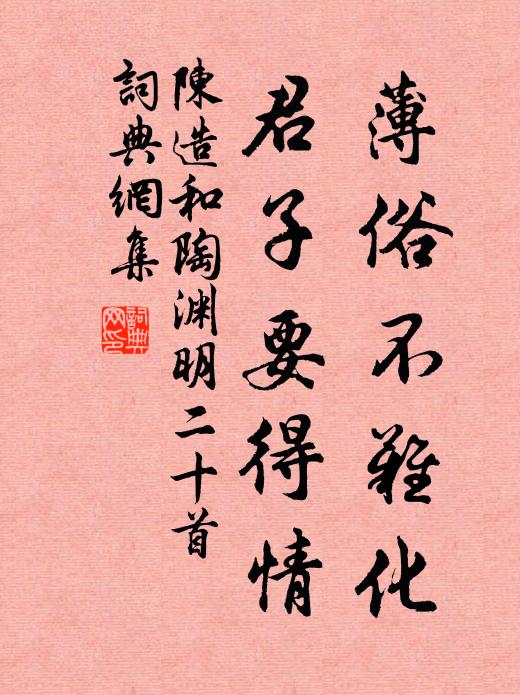 薄俗不難化
君子要得情
陳造和陶淵明二十首
詞典網集
詞典網印